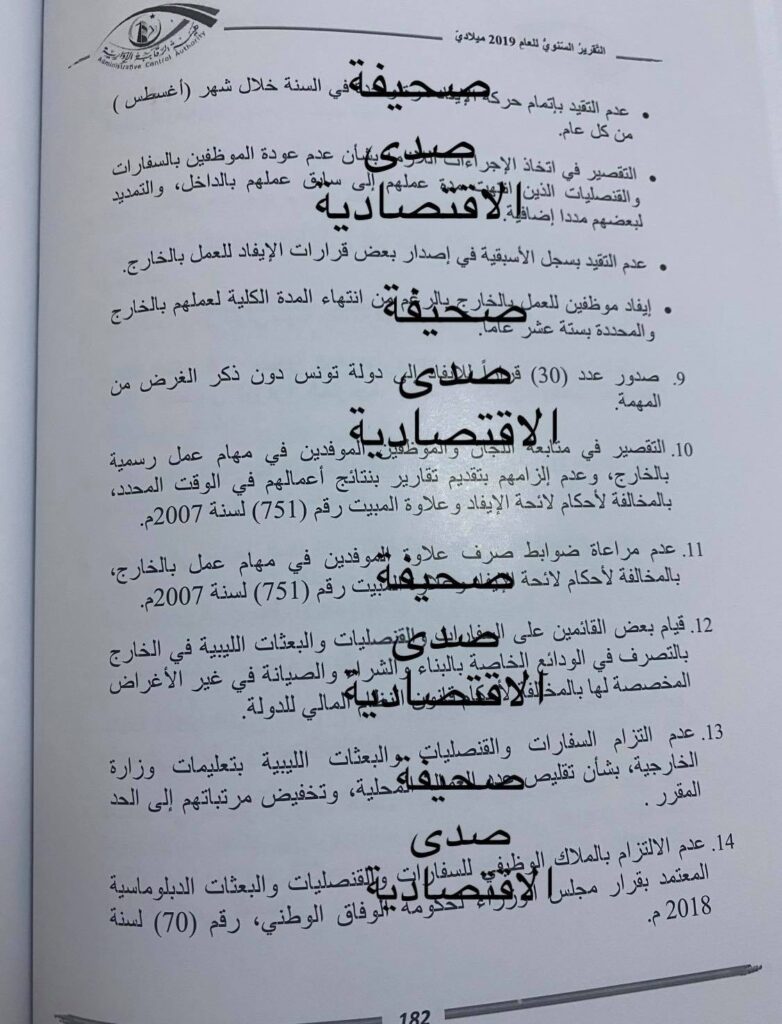 هيئة الرقابة الإدارية
Administrative Control Authority
التقرير السنوي للعام 2019 ميلادي
• عدم التقيد بإتمام حركة في السنة خلال شهر (أغسطس)
من كل عام.
• التقصير في اتخاذ الإجراءات بشأن عدم عودة الموظفين بالسفارات
والقنصليات الذين انتهت مدة عملهم إلى سابق عملهم بالداخل، والتمديد
لبعضهم مددا إضافية.
• عدم التقيد بسجل الأسبقية في إصدار بعض قرارات الإيفاد للعمل بالخارج.
• إيفاد موظفين للعمل بالخارج بالرغم من انتهاء المدة الكلية لعملهم بالخارج
والمحددة بستة عشر عاما.
9. صدور عدد (30) قراراً للإيفاد إلى دولة تونس دون ذكر الغرض من
المهمة.
10. التقصير في متابعة اللجان والموظفين الموفدين في مهام عمل رسمية
بالخارج، وعدم إلزامهم بتقديم تقارير بنتائج أعمالهم في الوقت المحدد،
بالمخالفة لأحكام لائحة الإيفاد وعلاوة المبيت رقم (751) لسنة 2007م.
11. عدم مراعاة ضوابط صرف علاوة الموفدين في مهام عمل بالخارج،
بالمخالفة لأحكام لائحة المبيت رقم (751) لسنة 2007م.
12. قيام بعض القائمين على السفارات والقنصليات والبعثات الليبية في الخارج
بالتصرف في الودائع الخاصة بالبناء والشراء والصيانة في غير الأغراض
المخصصة لها بالمخالفة المالي للدولة.
13. عدم التزام السفارات والقنصليات والبعثات الليبية بتعليمات وزارة
الخارجية، بشأن تقليص المحلية، وتخفيض مرتباتهم إلى الحد
المقرر .
14. عدم الالتزام بالملاك الوظيفي للسفارات والقنصليات والبعثات الدبلوماسية
المعتمد بقرار مجلس الوزراء لحكومة الوفاق الوطني، رقم (70) لسنة
2018 م.
182
صحيفة
صدى
الاقتصادية
صحيفة
صدى
الاقتصادية
صحيفة
صدى
الاقتصادية
صحيفة
صدى
الاقتصادية